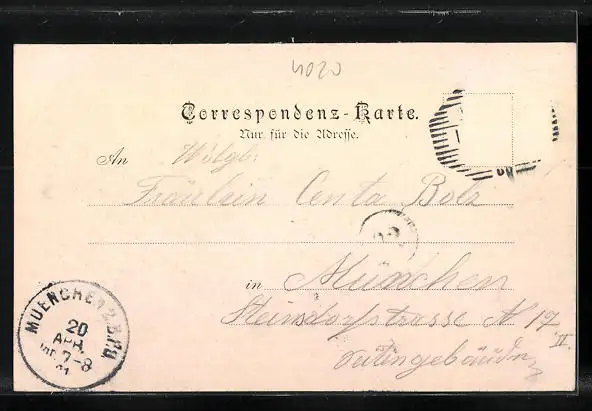 4020
Correspondenz-Karte.
Nur für die Adresse.
An Wolgb:
Fräulein Centa Bolz
in München
Steinsdorfstrasse N 17 II.
MUENCHEN 2.B.P.
20
APR.
7-8